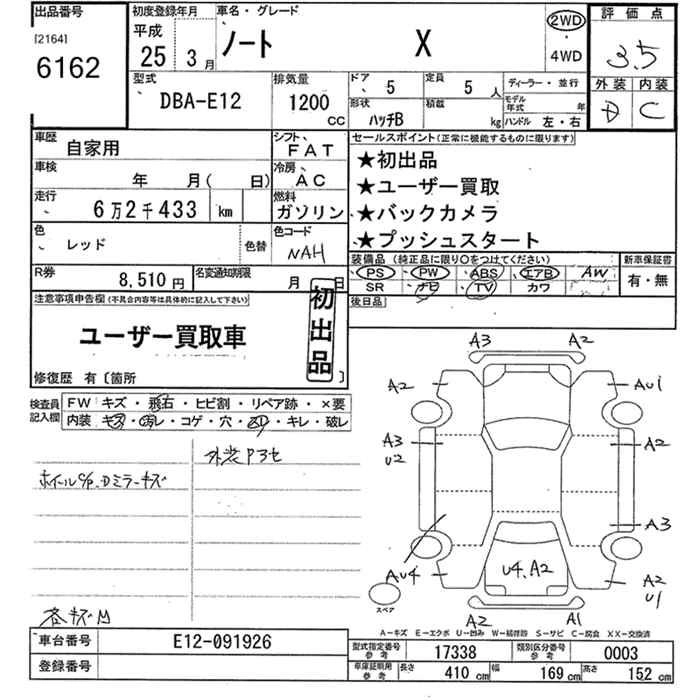 出品番号
[2164]
6162
初度登録年月
平成
25年 3月
車名・グレード
ノート X
2WD
・
4WD
評価点
3.5
外装 内装
D C
型式
DBA-E12
排気量
1200
CC
ドア
5
定員
5
人
ディーラー・並行
形状
ハッチB
積載
kg
モデル年式
年
ハンドル 左・右
車歴
自家用
シフト
FAT
車検
年 月( 日)
冷房
AC
走行
6万2千433 km
燃料
ガソリン
色
レッド
色替
色コード
NAH
R券
8,510円
名変通知期限
月 日
セールスポイント(正常に機能するものに限ります)
★初出品
★ユーザー買取
★バックカメラ
★プッシュスタート
装備品(純正品に限り○をつけてください)
新車保証書
PS PW ABS エアB AW
SR ナビ TV カワ
有・無
後日品
注意事項申告欄(不具合内容等は具体的に記入して下さい)
ユーザー買取車
初出品
修復歴 有〔箇所 〕
検査員記入欄
FW キズ・飛石・ヒビ割・リペア跡・×要
内装 キズ・汚れ・コゲ・穴・凹・キレ・破レ
外装P3セ
ホイールC/P.Dミラーキズ
A3 A2
A2 AU1
A3
U2
A2
A3
AU4
U4.A2
A2
U1
スペア
A2 A1
A－キズ E－エクボ U－凹み W－補修跡 S－サビ C－腐食 XX－交換済
車台番号
E12-091926
登録番号
型式指定番号
参考
17338
類別区分番号
参考
0003
車庫証明用
参考
長さ 410cm 幅 169cm 高さ 152cm